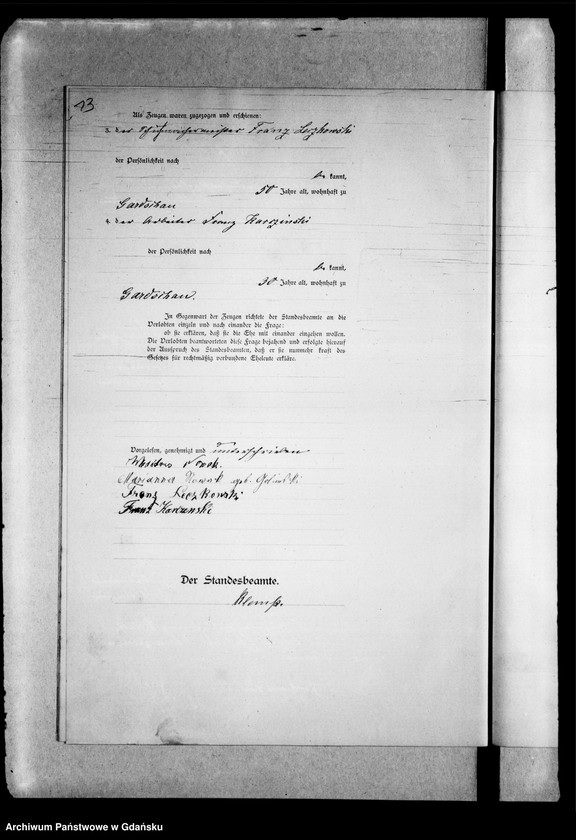 13
Als Zeugen waren zugezogen und erschienen:
3. der Schuhmachermeister Franz Leczkowski
der Persönlichkeit nach
be kannt,
50 Jahre alt, wohnhaft zu
Gardschau
4. der Arbeiter Franz
der Persönlichkeit nach
be kannt,
30 Jahre alt, wohnhaft zu
Gardschau.
In Gegenwart der Zeugen richtete der Standesbeamte an die
Verlobten einzeln und nach einander die Frage:
ob sie erklären, daß sie die Ehe mit einander eingehen wollen.
Die Verlobten beantworteten diese Frage bejahend und erfolgte hierauf
der Ausspruch des Standesbeamten, daß er sie nunmehr kraft des
Gesetzes für rechtmäßig verbundene Eheleute erkläre.
Vorgelesen, genehmigt und unterschrieben
Nowak.
Marianna Nowak geb.
Franz Leczkowski
Franz
Der Standesbeamte.